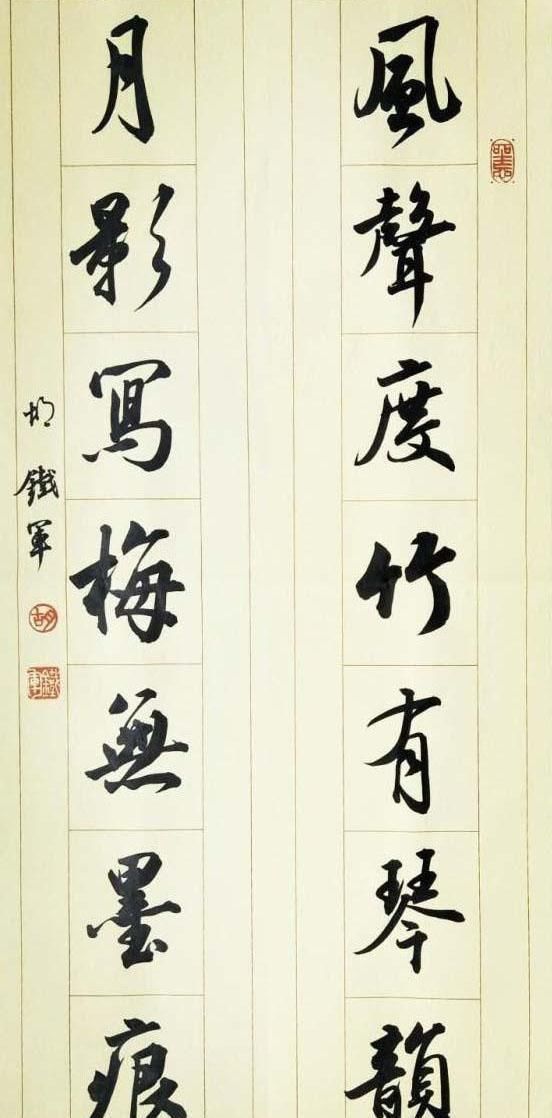 風聲度竹有琴韻
月影寫梅無墨痕
胡鐵軍
胡
鐵軍